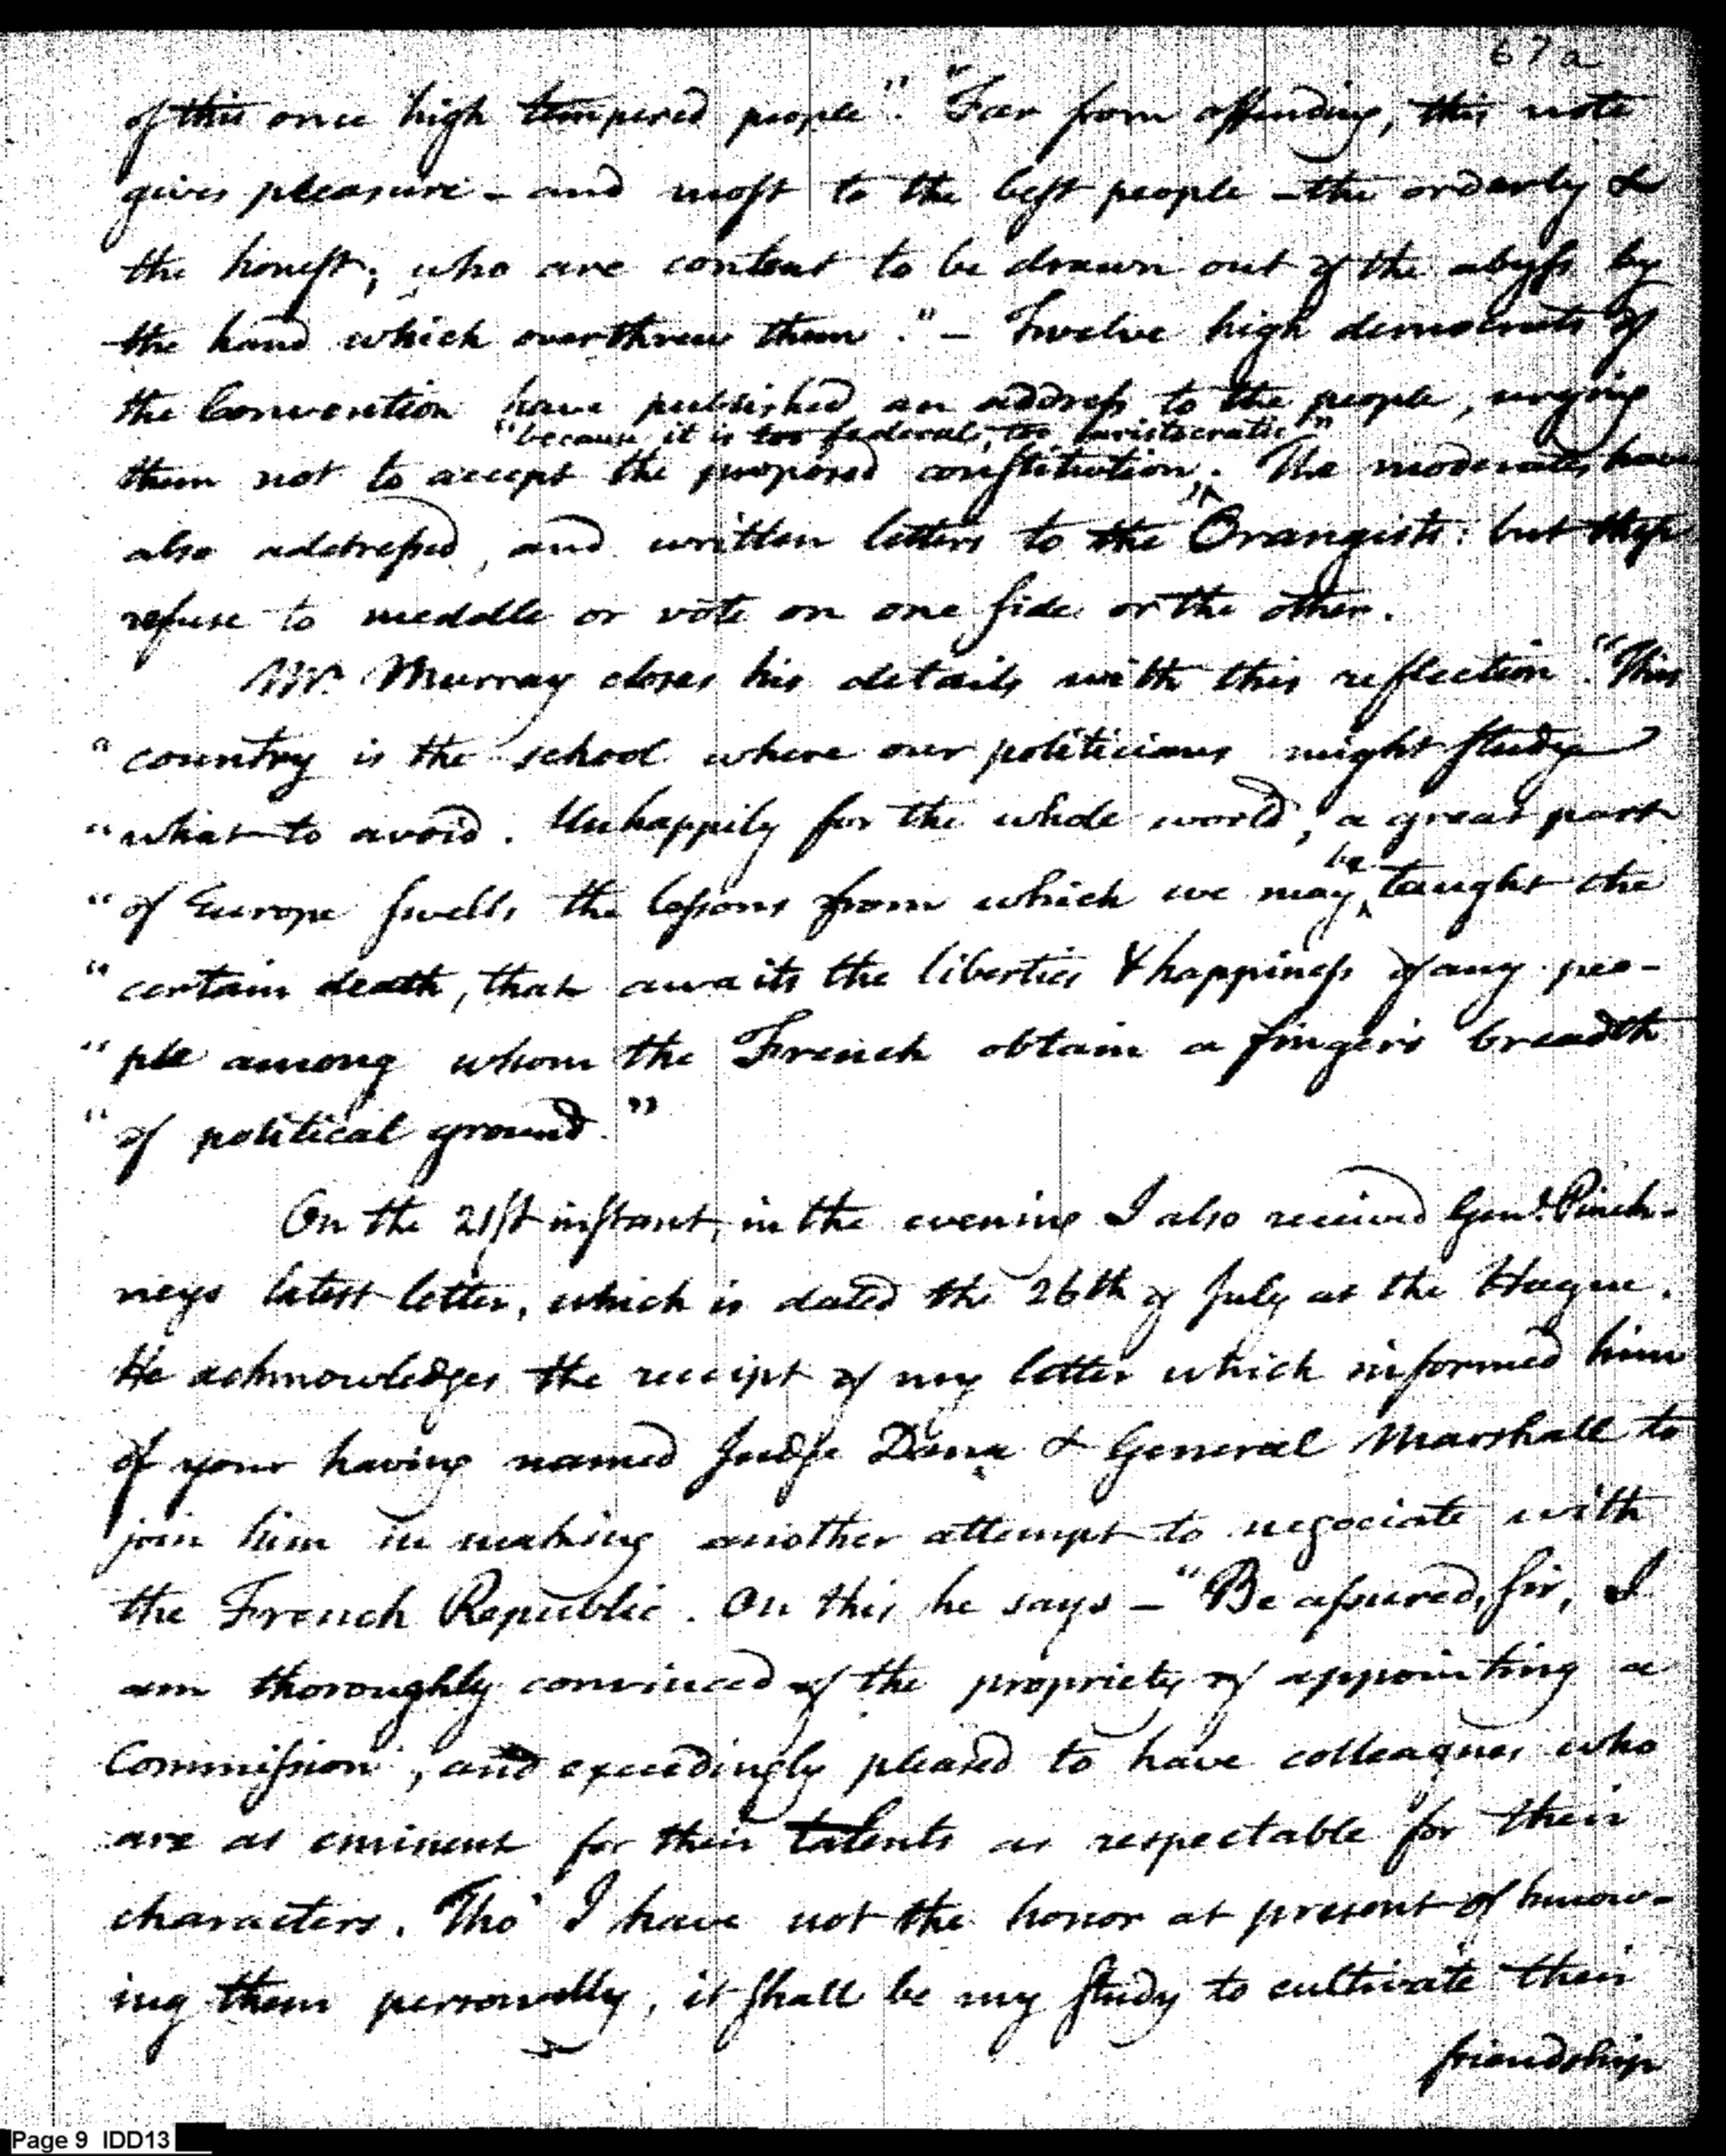 67a
of this once high tempered people". "Far from offending, this note
gives pleasure - and most to the best people - the orderly &
the honest, who are content to be drawn out of the abyss by
the hand which overthrew them." - Twelve high democrats of
the Convention have published an address to the people, urging
"because it is too federal, too aristocratic"
them not to accept the proposed constitution. The moderates have
also addressed, and written letters to the Orangists: but these
refuse to meddle or vote on one side or the other.
Mr. Murray closes his details with this reflection. "This
"country is the school where our politicians might study
"what to avoid. Unhappily for the whole world, a great part
be
"of Europe swells the lessons from which we may taught the
"certain death, that awaits the liberties & happiness of any peo-
"ple among whom the French obtain a finger's breadth
"of political ground."
On the 21st instant, in the evening I also received Genl. Pinck-
neys latest letter, which is dated the 26th of July at the Hague.
He acknowledges the receipt of my letter which informed him
of your having named Judge Dana & General Marshall to
join him in making another attempt to negociate with
the French Republic. On this he says - "Be assured, sir, I
am thoroughly convinced of the propriety of appointing a
Commission, and exceedingly pleased to have colleagues who
are as eminent for their talents as respectable for their
characters. Tho' I have not the honor at present of know-
ing them personally, it shall be my study to cultivate their
friendship
Page 9 IDD13